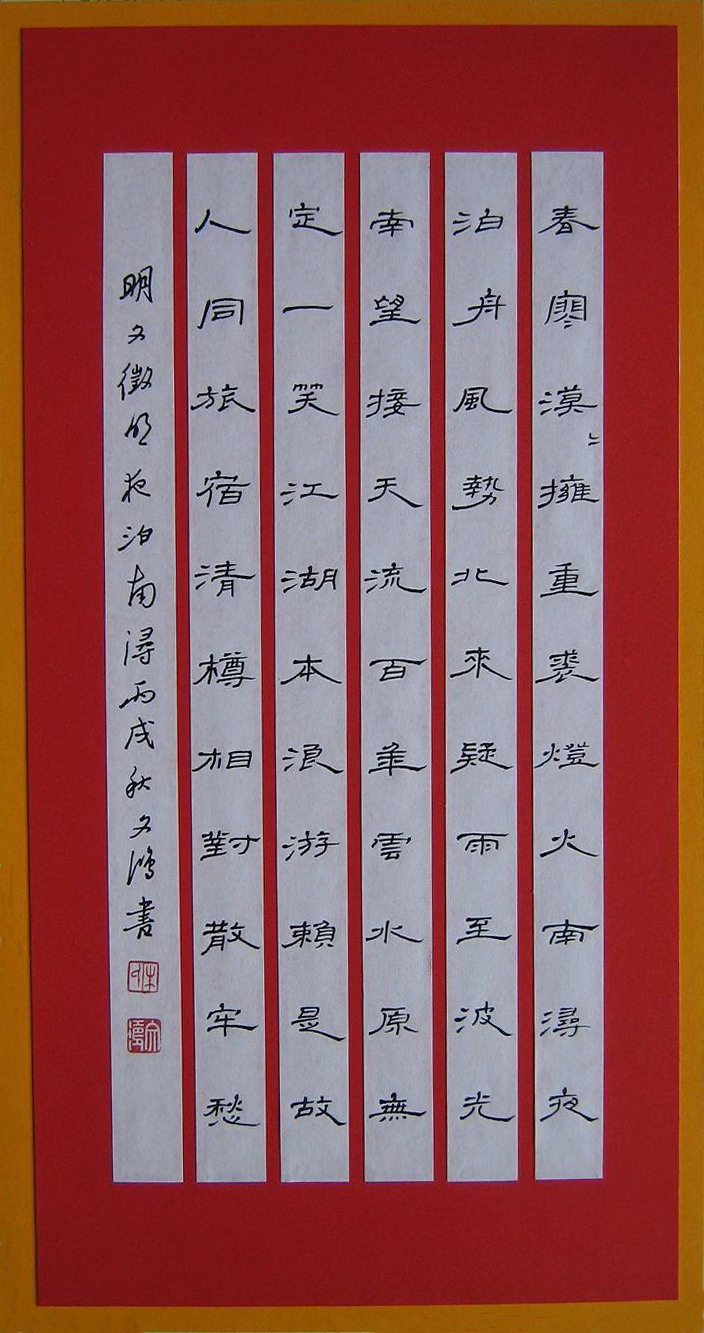 春寒漠〻擁重裘燈火南潯夜
泊舟風勢北來疑雨至波光
南望接天流百年雲水原無
定一笑江湖本浪游賴是故
人同旅宿清樽相對散牢愁
明文徵明夜泊南潯丙戌秋文鴻書